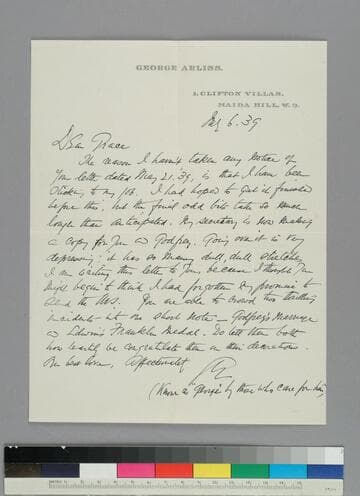 GEORGE ARLISS.
1, CLIFTON VILLAS,
MAIDA HILL, W.9.
July 6. 39
Dear Grace
The reason I haven't taken any notice of
your letter dated May 21. 39, is that I have been
sticking to my job. I had hoped to get it finished
before this, but the final odd bits take so much
longer than anticipated. My secretary is now making
a copy for you and Godfrey. Going over it is very
depressing; it has so many dull, dull stretches.
I am writing this letter to you, because I thought you
might begin to think I had forgotten my promise to
send the MS. You are able to crowd two thrilling
incidents into one short note — Godfrey's marriage
and Edwin's Franklin Medal. Do tell them both
how heartily we congratulate them on their decorations.
Our best love, Affectionately
(Known as George by those who care for him)